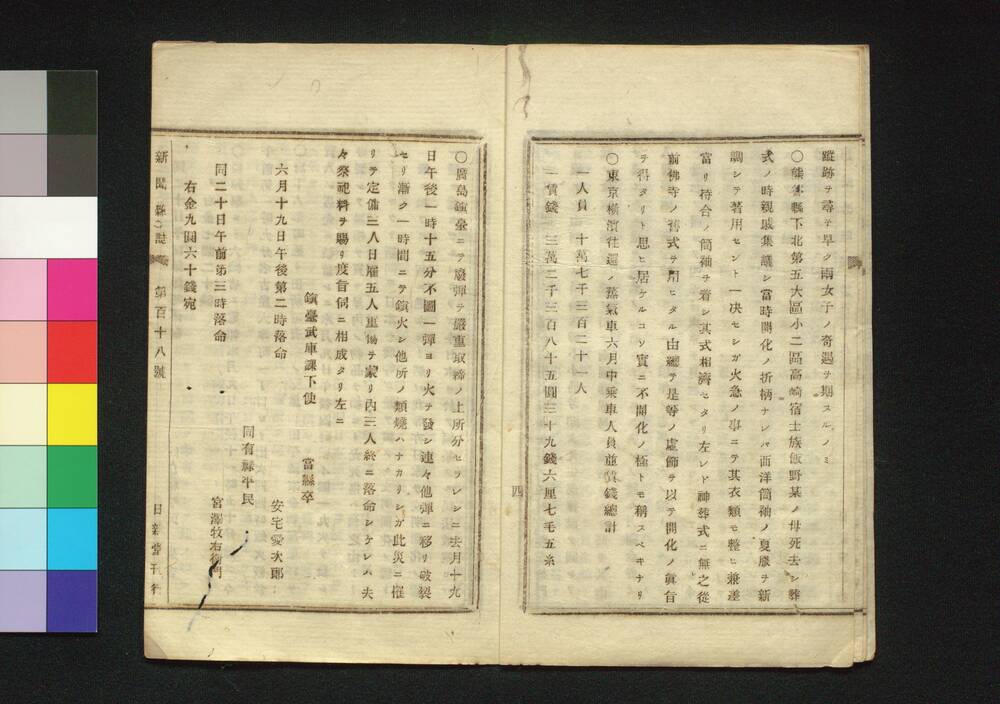 蹤跡ヲ尋テ早ク兩女子ノ奇遇ヲ期スルノミ
〇熊本縣下北第五大區小二區高崎宿士族飯野某ノ母死去シ葬
式ノ時親戚集議シ當時開化ノ折柄ナレバ西洋筒袖ノ夏服ヲ新
調シテ着用セント一决セシガ火急ノ事ニテ其衣類モ整ヒ兼差
當リ持合ノ筒袖ヲ着シ其式相濟セタリ左レド神葬式ニ無之從
前佛寺ノ舊式ヲ用ヒタル由總テ是等ノ虚飾ヲ以テ開化ノ眞旨
ヲ得タリト思ヒ居ケルコソ實ニ不開化ノ極トモ稱スベキナリ
〇東京橫濱往返ノ蒸氣車六月中乘車人員並賃錢總計
一人員 十萬七千三百二十一人
一賃錢 三萬二千三百八十五圓三十九錢六厘七毛五糸
四
〇廣島鎭臺ニテ廢彈ヲ嚴重取締ノ上所分セラレシニ去月十九
日午後一時十五分不圖一彈ヨリ火ヲ發シ連々他彈ニ移リ破裂
セリ漸ク一時間ニテ鎭火シ他所ノ類燒ハナカリシガ此災ニ罹
リテ定傭三人日雇五人重傷ヲ蒙リ內三人終ニ落命シケレハ夫
々祭祀料ヲ賜リ度旨伺ニ相成タリ左ニ
鎭臺武庫課下使 當縣卒
六月十九日午後第二時落命 安宅愛次郎
同有縣平民
同二十日午前第三時落命 宮澤牧右衛門
右金九圓六十錢宛
新聞雜誌 第百十八號 日新堂刊行